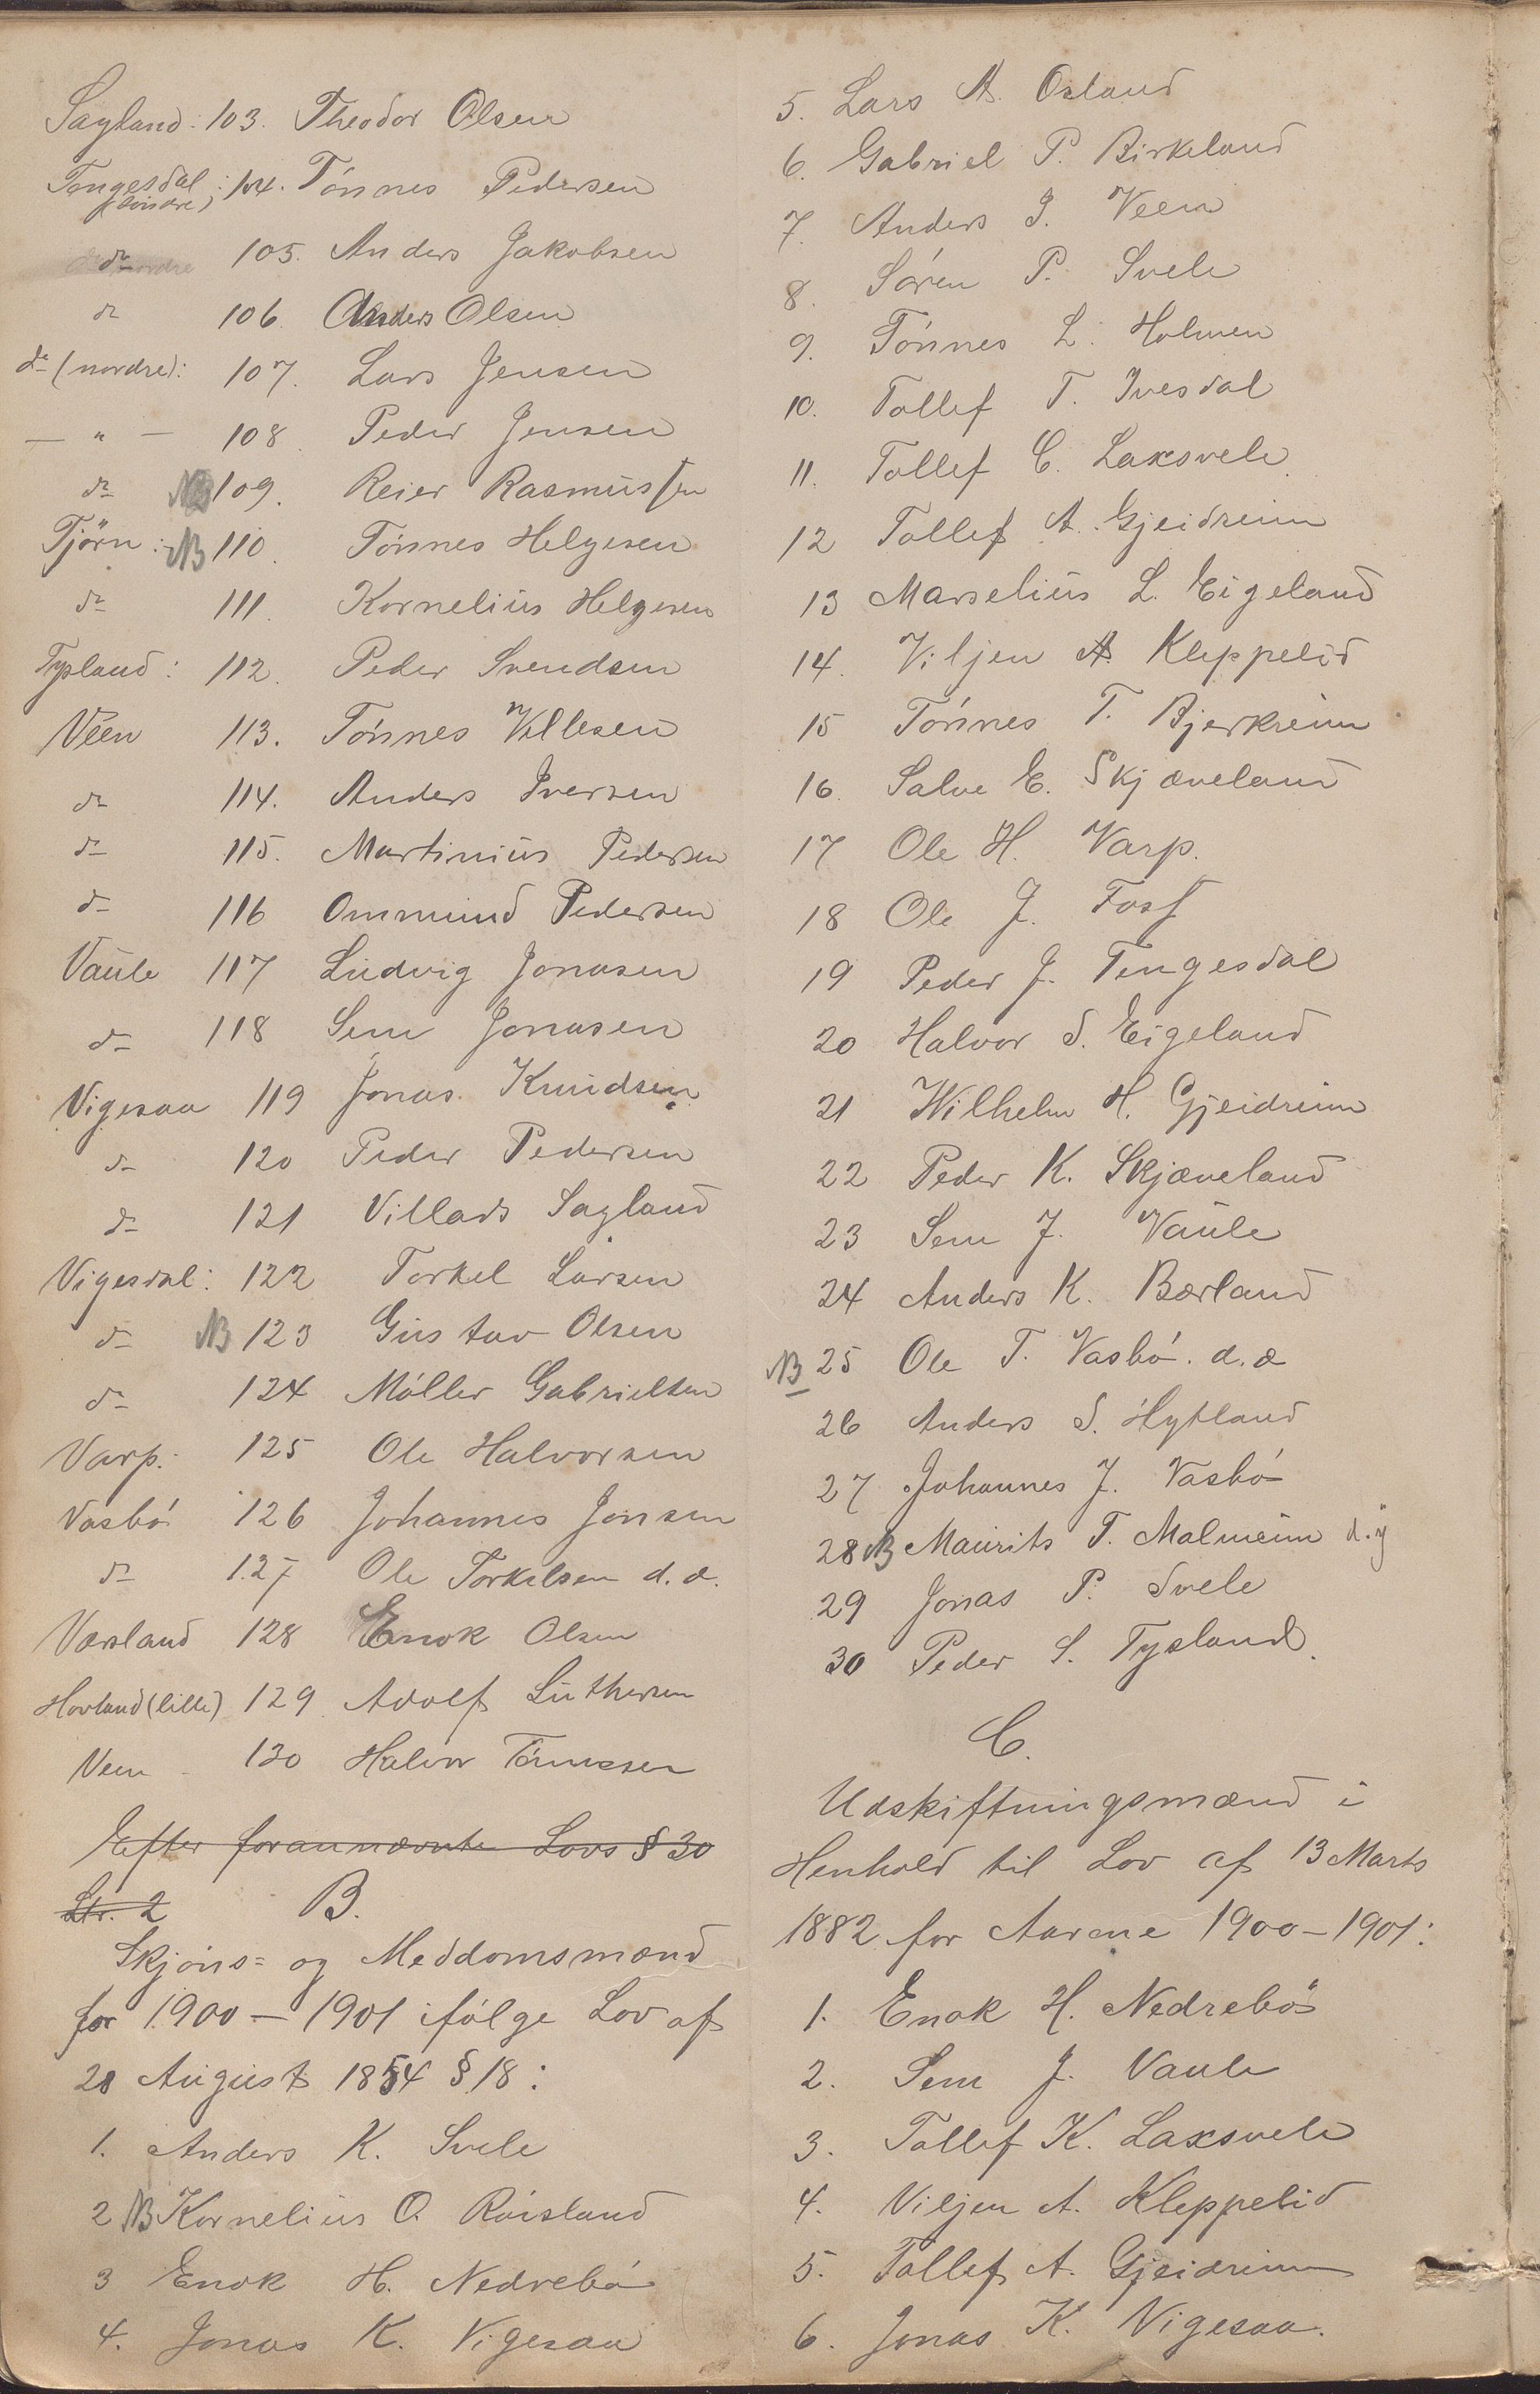 Sagland: 103. Theodor Olsen
Tengesdal: 104. Tönnes Pedersen
(søndre)
do 105. Anders Jakobsen
do 106. Anders Olsen
do (nordre): 107. Lars Jensen
— " — 108. Peder Jensen
do NB 109. Reier Rasmussen
Tjörn: NB 110. Tönnes Helgesen
do 111. Kornelius Helgesen
Tysland: 112. Peder Svendsen
Veen 113. Tönnes Villesen
do 114. Anders Iversen
do 115. Martinius Pedersen
do 116 Ommund Pedersen
Vaule 117 Ludvig Jonasen
do 118 Sem Jonasen
Vigesaa 119 Jonas Knudsen
do 120 Peder Pedersen
do 121 Villads Sagland
Vigesdal: 122 Torkel Larsen
do NB 123 Gustav Olsen
do 124 Möller Gabrielsen
Varp: 125 Ole Halvorsen
Vasbö 126 Johannes Jonsen
do 127 Ole Torkelsen d.æ.
Versland 128 Enok Olsen
Hovland (lille) 129 AdolfLuthersen
Veen 130 Halvor Tönnessen
Efter forannævnte Lovs § 30
Ltr. 2 B.
Skjöns- og Meddomsmænd
for 1900–1901 ifölge Lov af
28 August 1854 § 18:
1. Anders K. Svele
2 NB Kornelius O. Röisland
3 Enok H. Nedrebö
4. Jonas K. Vigesaa
5. Lars A. Osland
6. Gabriel P. Birkeland
7. Anders I. Veen
8. Sören P. Svele
9. Tönnes L. Holmen
10. Tollef T. Ivesdal
11. Tollef C. Laksvele
12 Tollef A. Gjeidreim
13 Marselius L. Eigeland
14. Viljen A. Kleppelid
15 Tönnes T. Bjerkreim
16. Salve E. Skjæveland
17 Ole H. Varp.
18 Ole J. Foss
19 Peder J. Tengesdal
20 Halvor S. Eigeland
21 Wilhelm H. Gjeidreim
22 Peder K. Skjæveland
23 Sem J. Vaule
24 Anders K. Bærland
NB 25 Ole T. Vasbö. d.æ
26 Anders S. Hytland
27 Johannes J. Vasbö
28 NB Maurits T. Malmeim d.y
29 Jonas P. Svele
30 Peder S. Tysland.
C.
Udskiftningsmænd i
Henhold til Lov af 13 Marts
1882 for Aarene 1900–1901:
1. Enok H. Nedrebö
2. Sem J. Vaule
3. Tollef K. Laksvele
4. Viljen A. Kleppelid
5. Tollef A. Gjeidreim
6. Jonas K. Vigesaa.